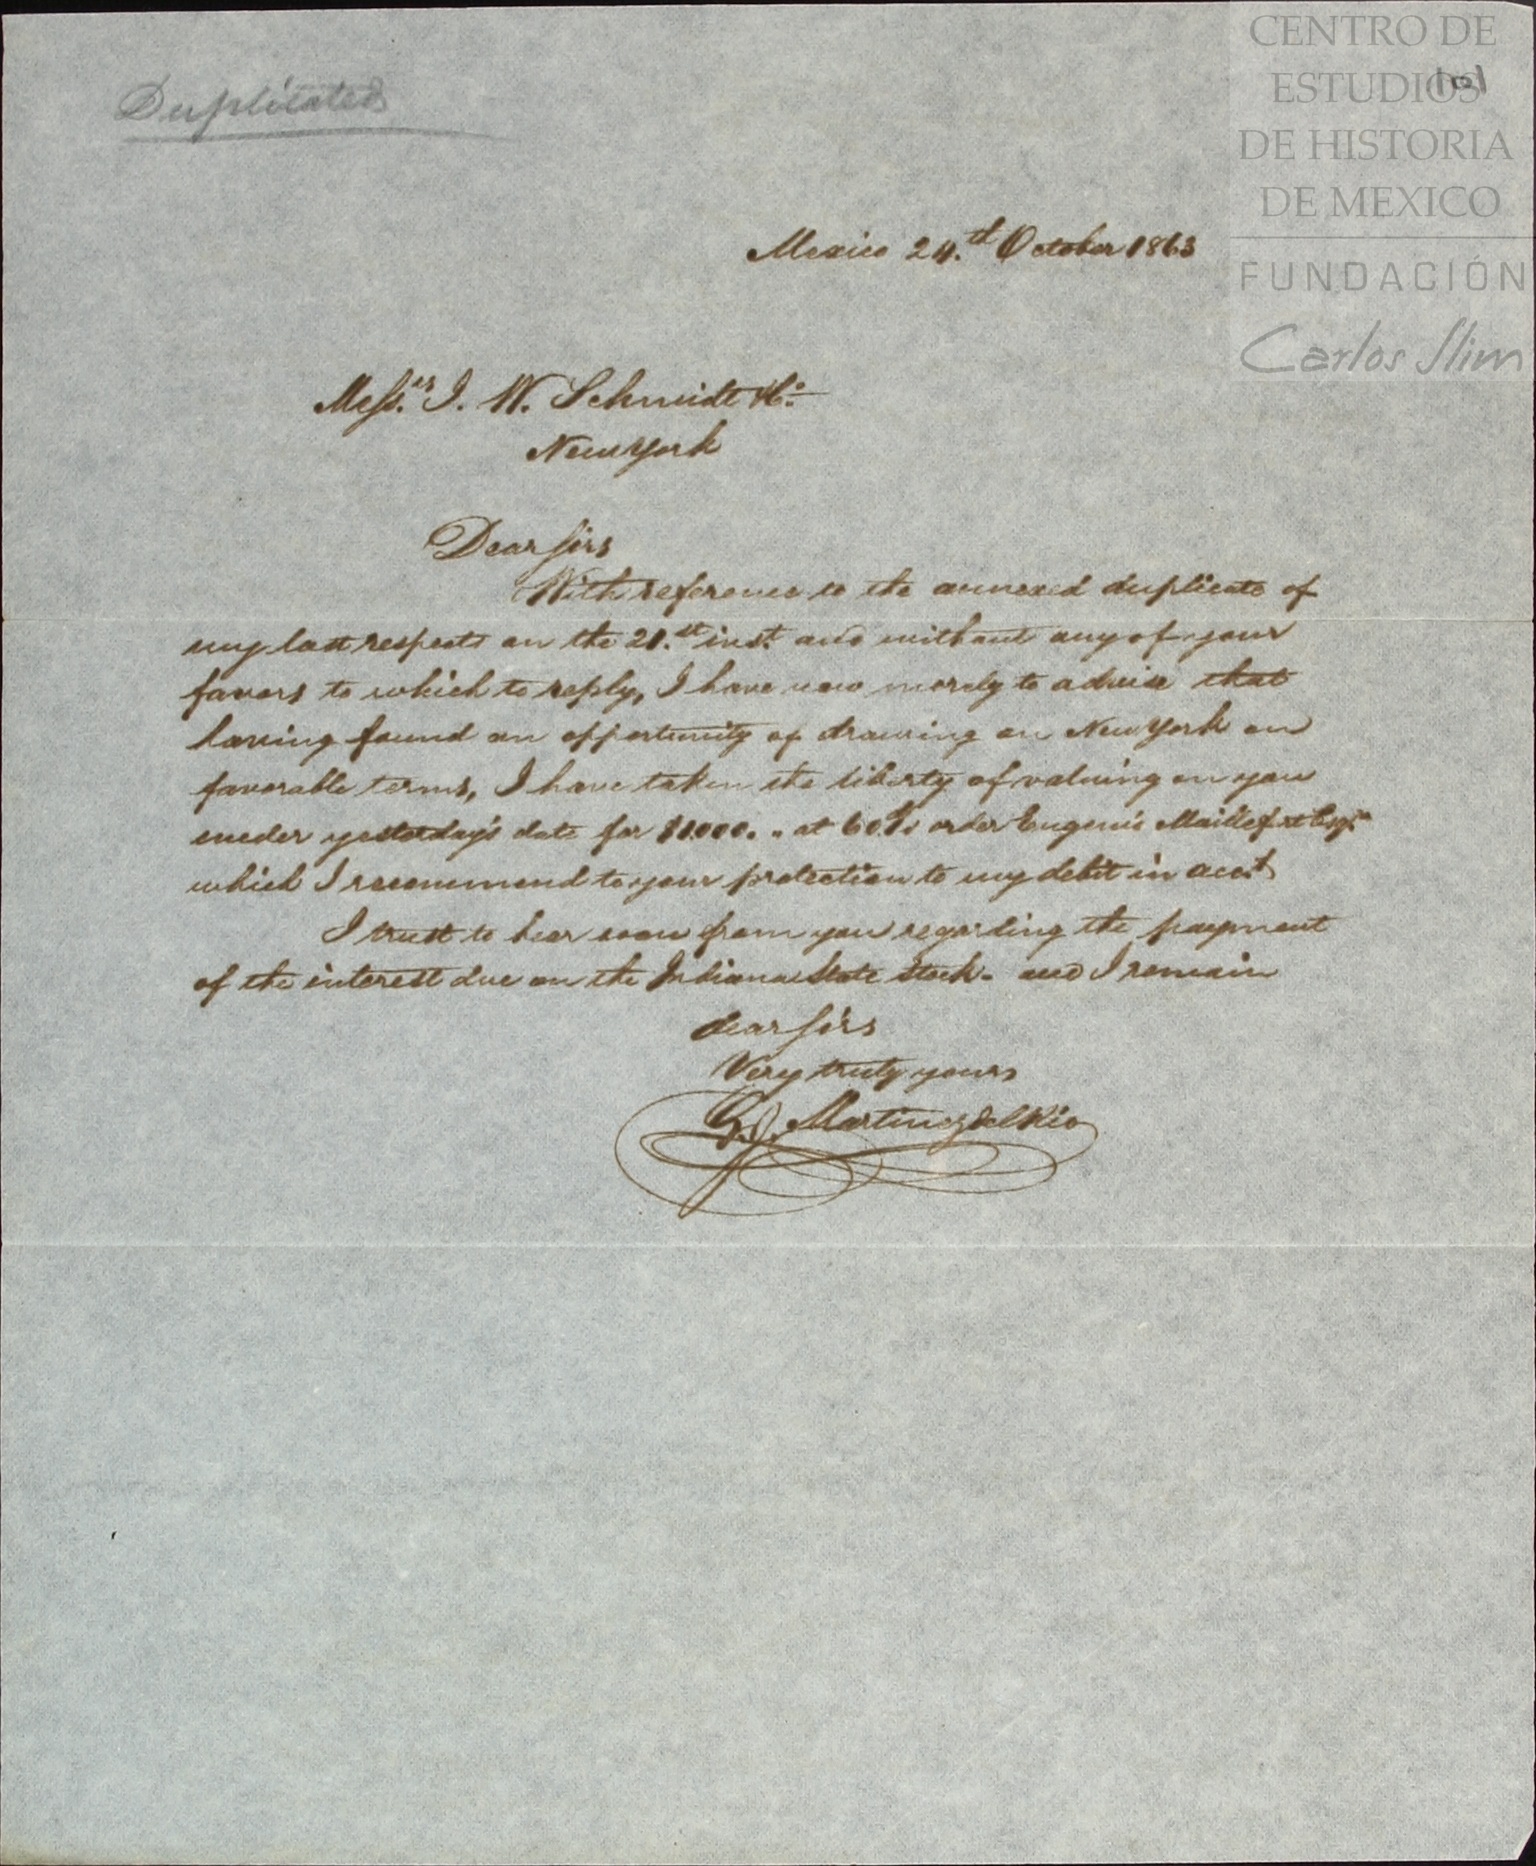 Duplicated
101
CENTRO DE
ESTUDIOS
DE HISTORIA
DE MEXICO
FUNDACIÓN
Carlos Slim
Mexico 24.th October 1863
Mess.rs J. W. Schmidt & Co.
New York
Dear Sirs
With reference to the annexed duplicate of
my last respects on the 21.st inst. and without any of your
favors to which to reply, I have now merely to advise that
having found an opportunity of drawing on New York on
favorable terms, I have taken the liberty of valuing on you
under yesterday's date for $1.000. „ at 60 d/s order Eugenio Maillefert Esqre
which I recommend to your protection to my debit in acct.
I trust to hear soon from you regarding the payment
of the interest due on the Indiana State stock. and I remain
dear Sirs
Very truly yours
Martinez del Rio